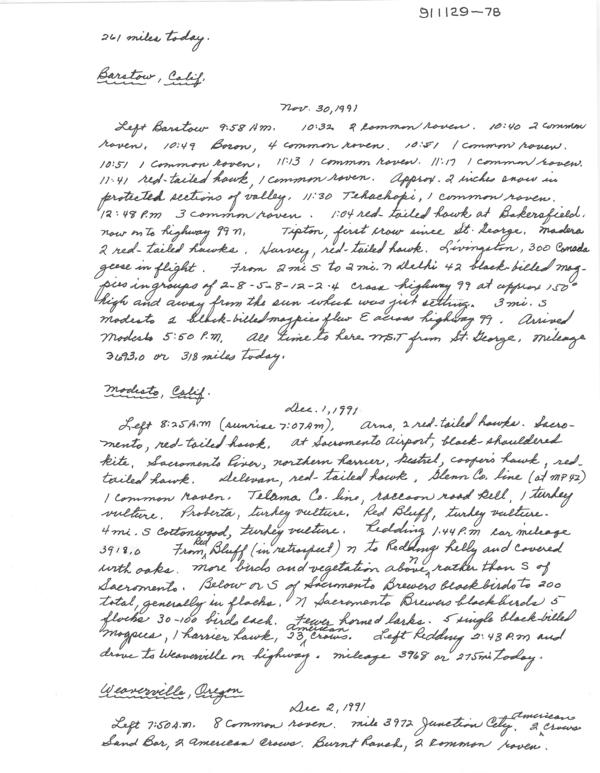 911129-78
261 miles today.
Barstow, Calif.
Nov. 30, 1991
Left Barstow 9:58 AM. 10:32 2 Common raven. 10:40 2 common
raven. 10:49 Boron, 4 common raven. 10:51 1 common raven.
10:51 1 Common raven. 11:13 1 common raven. 11:17 1 common raven.
11:41 red-tailed hawk, 1 common raven. Approx. 2 inches snow in
protected sections of valley. 11:30 Tehachopi, 1 common raven.
12:48 P.m 3 common raven. 1:04 red-tailed hawk at Bakersfield.
now on to highway 99 N. Tipton, first crow since St. George. Madera
2 red-tailed hawks. Harvey, red-tailed hawk. Livingston, 300 Canada
geese in flight. From 2 mi S to 2 mi. N Delhi 42 black-billed mag-
pies in groups of 2-8-5-8-12-2-4 cross highway 99 at approx 150°
high and away from the sun which was just setting. 3 mi. S
modesto 2 black-billed magpies flew E across highway 99. Arrived
Modesto 5:50 P.M. All time to here M.S.T from St. George. mileage
3693.0 or 318 miles today.
Modesto, Calif.
Dec. 1, 1991
Left 8:25 A.M (sunrise 7:07 AM). Arno, 2 red-tailed hawks. Sacro-
mento, red-tailed hawk. at Sacramento Airport, black-shouldered
kite. Sacramento River, northern harrier, kestrel, cooper's hawk, red-
tailed hawk. Delevan, red-tailed hawk. Glenn Co. line (at MP 42)
1 common raven. Tehama Co. line, raccoon road kill, 1 turkey
vulture. Proberta, turkey vulture. Red Bluff, turkey vulture.
4 mi. S Cottonwood, turkey vulture. Redding 1:44 P.M car mileage
3918.0 From Red Bluff (in retrospect) N to Redding hilly and covered
with oaks. more birds and vegetation above N rather than S of
Sacramento. Below or S of Sacramento Brewers blackbirds to 200
total, generally in flocks. N Sacramento Brewers blackbirds 5
flocks 30-100 birds each. Fewer horned larks. 5 single black-billed
magpies, 1 harrier hawk, 23 american crows. Left Redding 2:43 P.M and
drove to Weaverville on highway. mileage 3968 or 275 mi today.
Weaverville, Oregon
Dec 2, 1991
Left 7:50 A.M. 8 Common raven. mile 3972 Junction City, 2 American crows
Sand Bar, 2 american crows. Burnt Ranch, 2 common raven.